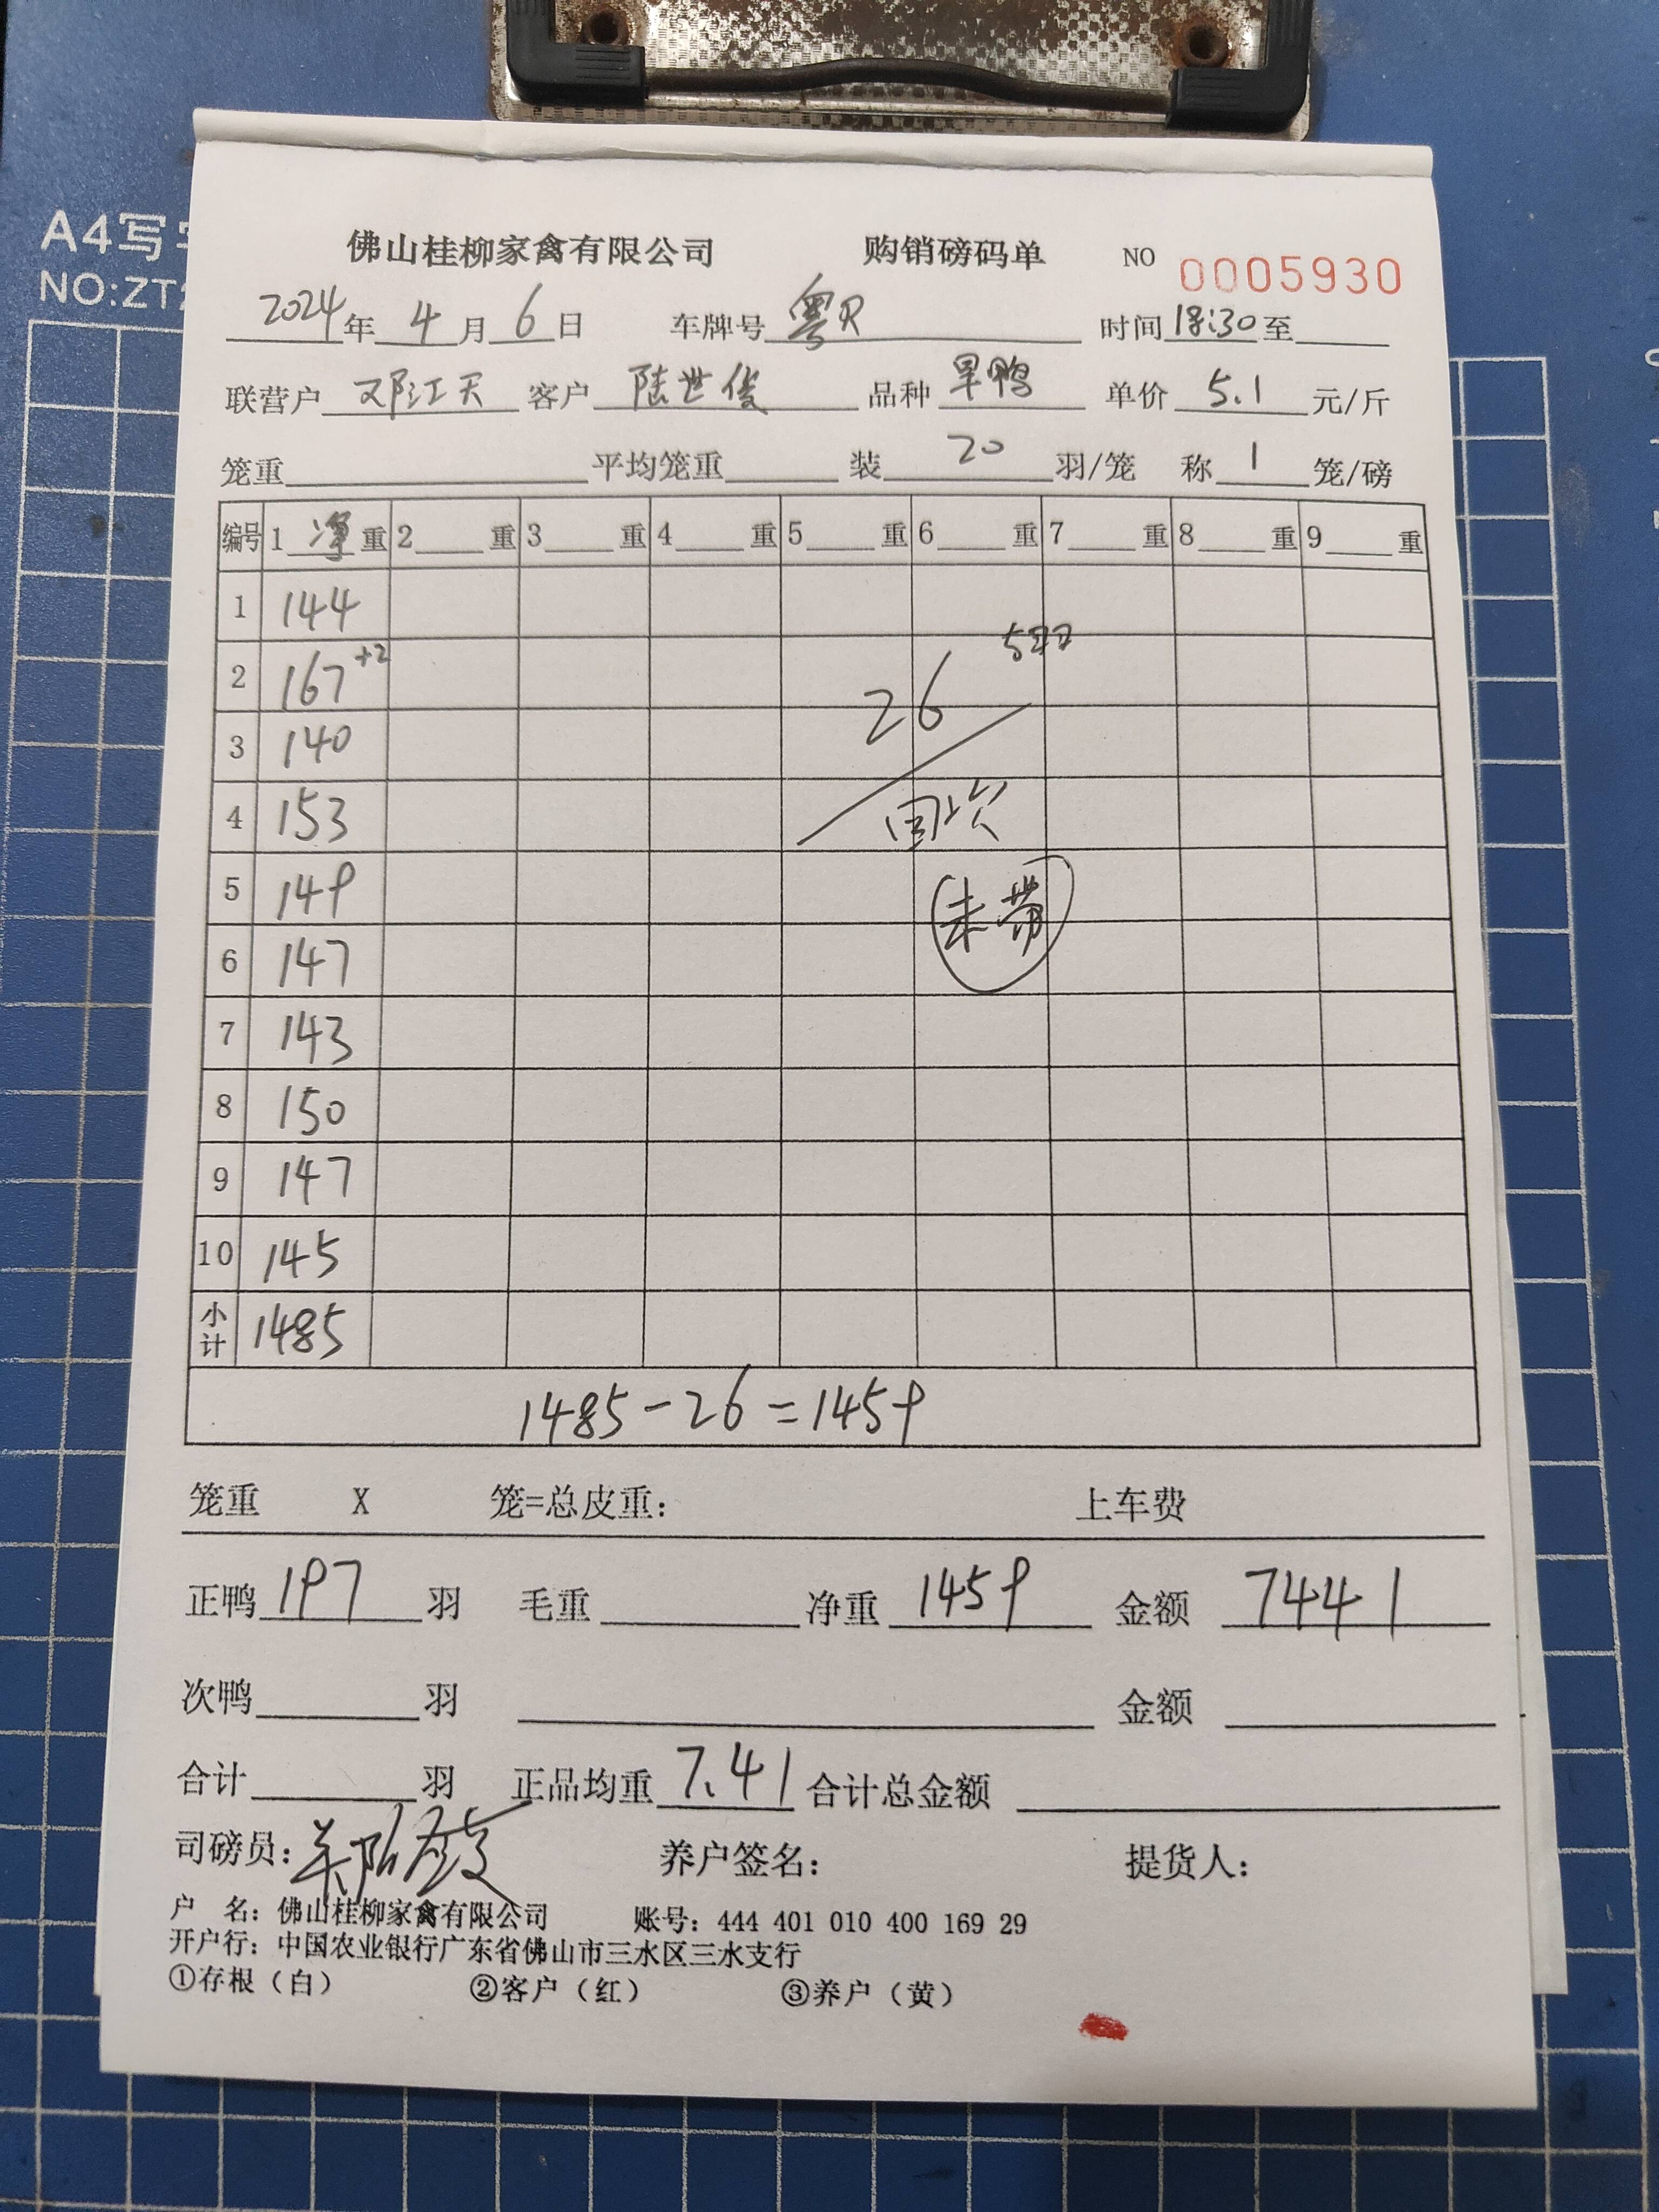 A4写
NO:ZT
佛山桂柳家禽有限公司 购销磅码单 NO 0005930
2024年 4月 6日 车牌号 粤R 时间 18:30至
联营户 邓江天 客户 陆世俊 品种 旱鸭 单价 5.1 元/斤
笼重 平均笼重 装 20 羽/笼 称 1 笼/磅
编号 1 净 重 2 重 3 重 4 重 5 重 6 重 7 重 8 重 9 重
1 144
2 167+2
3 140
26
4 153
5 149
未带
6 147
7 143
8 150
9 147
10 145
小计 1485
1485-26=1459
笼重 X 笼=总皮重: 上车费
正鸭 197 羽 毛重 净重 1459 金额 7441
次鸭 羽 金额
合计 羽 正品均重 7.41 合计总金额
司磅员: 养户签名: 提货人:
户 名: 佛山桂柳家禽有限公司 账号: 444 401 010 400 169 29
开户行: 中国农业银行广东省佛山市三水区三水支行
①存根(白) ②客户(红) ③养户(黄)